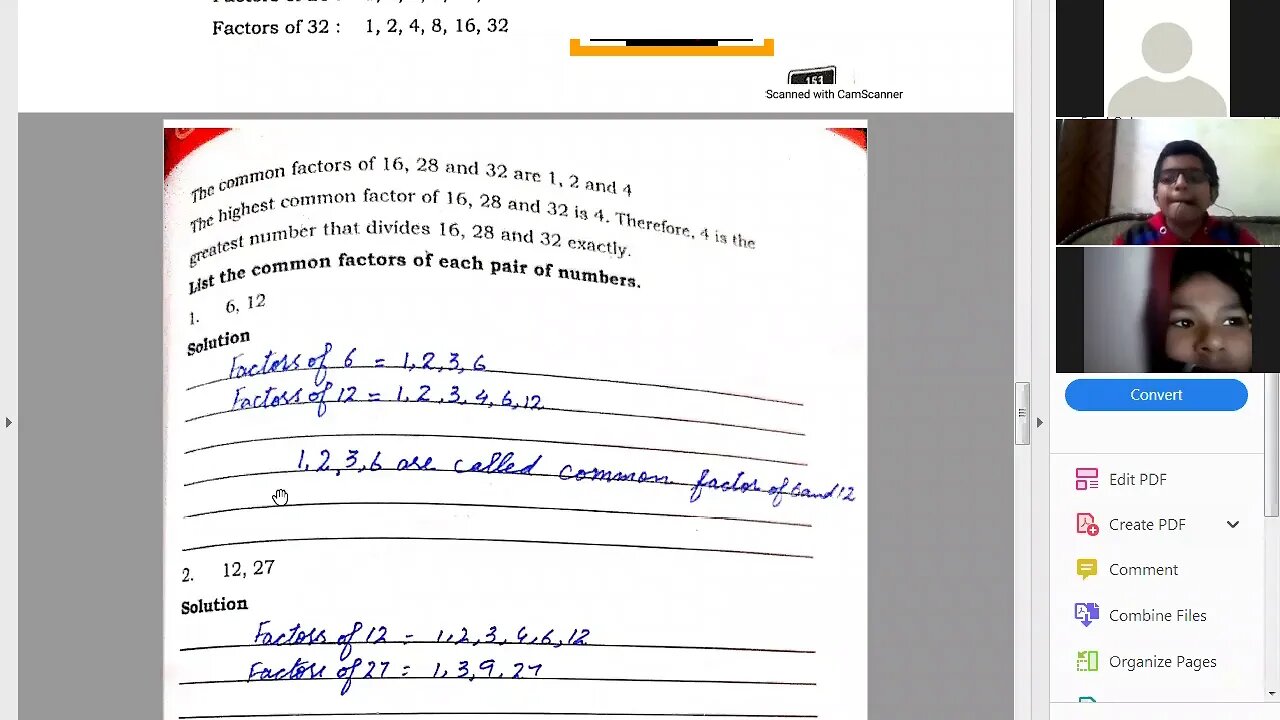 Factors of 32 : 1, 2, 4, 8, 16, 32
153
Scanned with CamScanner
The common factors of 16, 28 and 32 are 1, 2 and 4
The highest common factor of 16, 28 and 32 is 4. Therefore, 4 is the
greatest number that divides 16, 28 and 32 exactly.
List the common factors of each pair of numbers.
1. 6, 12
Solution
Factors of 6 = 1, 2, 3, 6
Factors of 12 = 1, 2, 3, 4, 6, 12
1, 2, 3, 6 are called common factor of 6 and 12
2. 12, 27
Solution
Factors of 12 = 1, 2, 3, 4, 6, 12
Factors of 27 = 1, 3, 9, 27
Convert
Edit PDF
Create PDF
Comment
Combine Files
Organize Pages